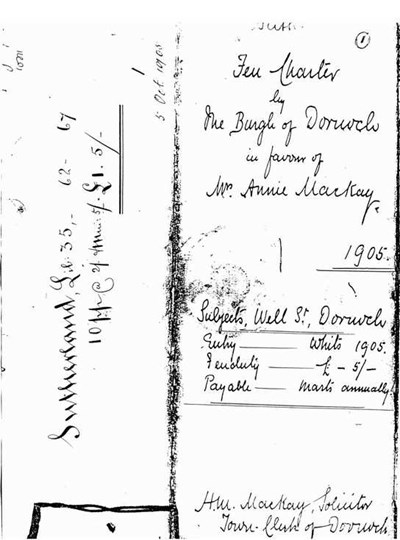 ①
Feu Charter
by
The Burgh of Dornoch
in favour of
Mrs. Annie Mackay,
1905.
Subjects, Well St, Dornoch
Entry — Whits 1905.
Feuduty — £ - 5/-
Payable — Marts annually
H.M. Mackay, Solicitor
Town-Clerk of Dornoch
Sutherland, Lib 35,- 62- 67
10 pp @ 2/ £1. 5/-
5 Oct 1905